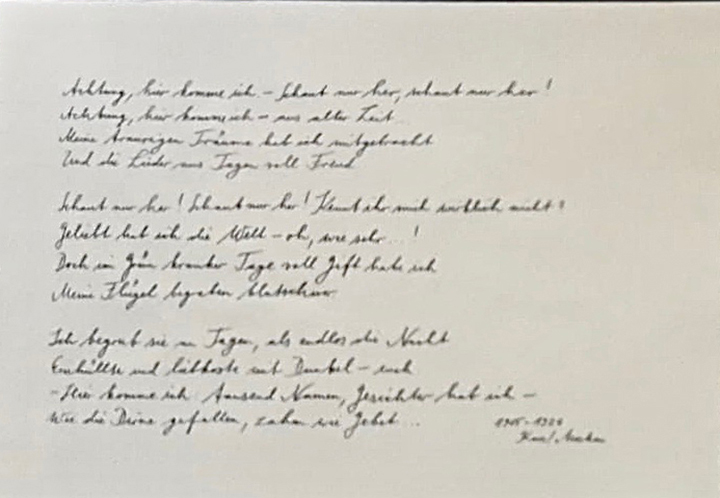 Achtung, hier komme ich. – Schaut nur her, schaut nur her!
Achtung, hier komme ich – aus alter Zeit
Meine traurigen Träume hab ich mitgebracht
Und die Lieder aus Tagen voll Freud
Schaut nur her! Schaut nur her! Kennt ihr mich wirklich nicht?
Geliebt hab ich die Welt – oh, wie sehr...!
Doch im Grün kranker Tage voll Gift habe ich
Meine Flügel begraben
Ich begrub sie in Tagen, als endlos die Nacht
Einhüllte und liebkoste mit Dunkel – euch
– Hier komme ich. Tausend Namen, Gesichter hab ich –
Wie die Dirne gefallen, zahm wie Gebet...